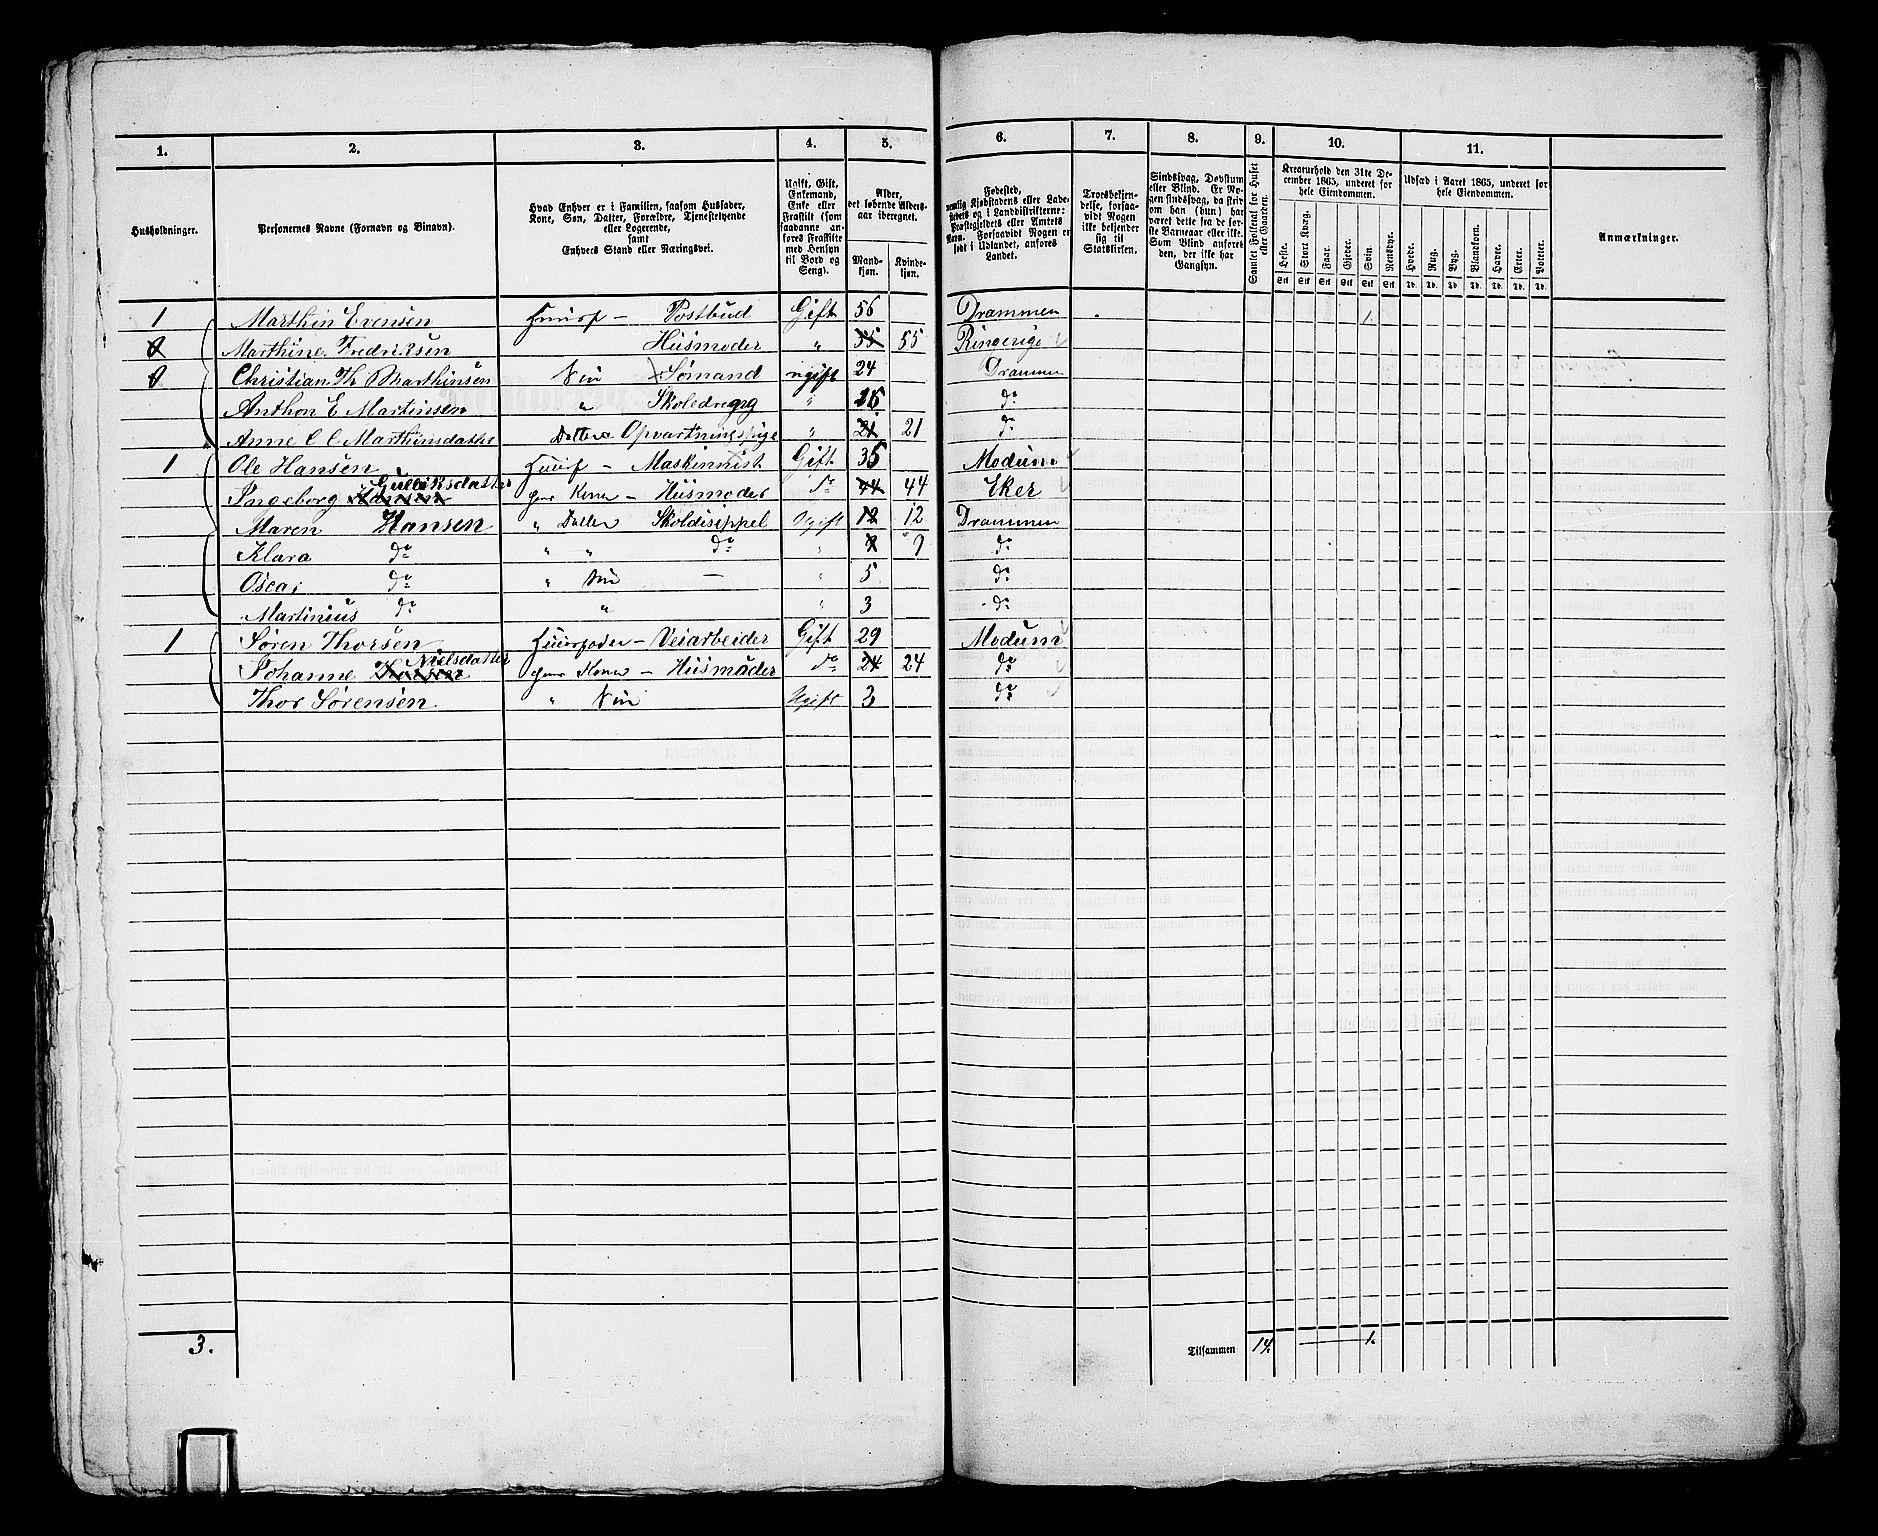 1. 2. 3. 4. 5. 6. 7. 8. 9. 10. 11.
Husholdninger.
Personernes Navne (Fornavn og Binavn).
Hvad Enhver er i Familien, saasom Husfader,
Kone, Søn, Datter, Forældre, Tjenestetyende
eller Logerende,
samt
Enhvers Stand eller Næringsvei.
Ugift, Gift,
Enkemand,
Enke eller
Fraskilt (som
saadanne an-
føres Fraskilte
med Hensyn
til Bord og
Seng).
Alder,
det løbende Alders-
aar iberegnet.
Mand-
kjøn.
Kvinde-
kjøn.
Fødested,
nemlig Kjøbstadens eller Lade-
stedets og i Landdistrikterne:
Præstegjeldets eller Amtets
Navn. Forsaavidt Nogen er
født i Udlandet, anføres
Landet.
Troesbekjen-
delse, forsaa-
vidt Nogen
ikke bekjender
sig til
Statskirken.
Sindssvag, Døvstum
eller Blind. Er No-
gen sindssvag, da skriv
om han (hun) har
været dette fra de før-
ste Barneaar eller ikke.
Som Blind anføres
den, der ikke har
Gangsyn.
Samlet Folketal for Huset
eller Gaarden.
Kreaturhold den 31te De-
cember 1865, underet for
hele Eiendommen.
Heste. Stort Kvæg. Faar. Gjeder. Svin. Rensdyr.
Udsæd i Aaret 1865, underet for
hele Eiendommen.
Hvede. Rug. Byg. Blandkorn. Havre. Erter. Poteter.
Anmærkninger.
1 Marthin Evensen Huusf – Postbud Gift 56 Drammen 1.
Marthine Fredriksen Husmoder " 55 55 Ringerige
Christian Th Marthinsen Søn Sømand ugift 24 Drammen
Anthon E Martinsen " Skoledreng " do
Anne C C Marthinsdatter Datter Opvartningspige " 21 21 do
1 Ole Hansen Huusf – Maskinnist Gift 35 Modum
Gulliksdatter
Ingeborg Hansen hans Kone – Husmoder do 44 44 Eker
Maren Hansen " Datter Ugift 12 12 Drammen
Klara do " " do " 9 9 do
Oscar do " Søn — " 5 do
Martinius do " " 3 do
1 Søren Thorsen Huusfader – Veiarbeider Gift 29 Modum
Nielsdatter
Johanne hans Kone – Husmoder do 24 24 do
Thor Sørensen " Søn Ugift 3 do
3. Tilsammen 14. 1.